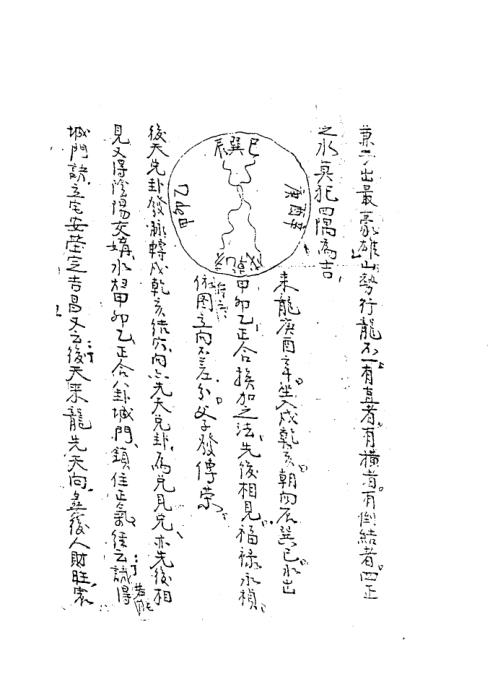 兼子出最豪雄山勢行龍不一有直者有橫者有倒結者四正
之水真犯四隅為吉
辰巽巳
庚酉辛
來龍庚酉辛坐入戌乾亥朝向辰巽巳水出
甲卯乙正合挨加之法先後相見福祿永楨
依圖立向不差分父子發傳榮
後天先卦發脉轉戌乾亥結穴向亦先天兌卦為兌見兌亦先後相
見又得陰陽交媾水歸甲卯乙正合八卦城門鎖住正氣經云識得
城門訣立宅安塋定吉昌又云後天來龍先天向後人財旺